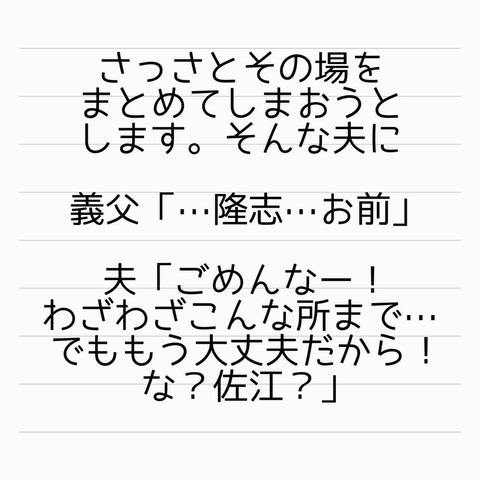 さっさとその場を
まとめてしまおうと
します。そんな夫に
義父「…隆志…お前」
夫「ごめんなー！
わざわざこんな所まで…
でももう大丈夫だから！
な？佐江？」